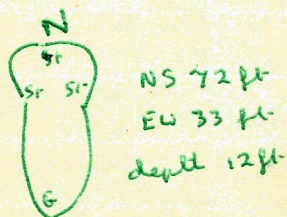 N
St
St St
G
NS 42 ft
EW 33 ft
depth 12 ft